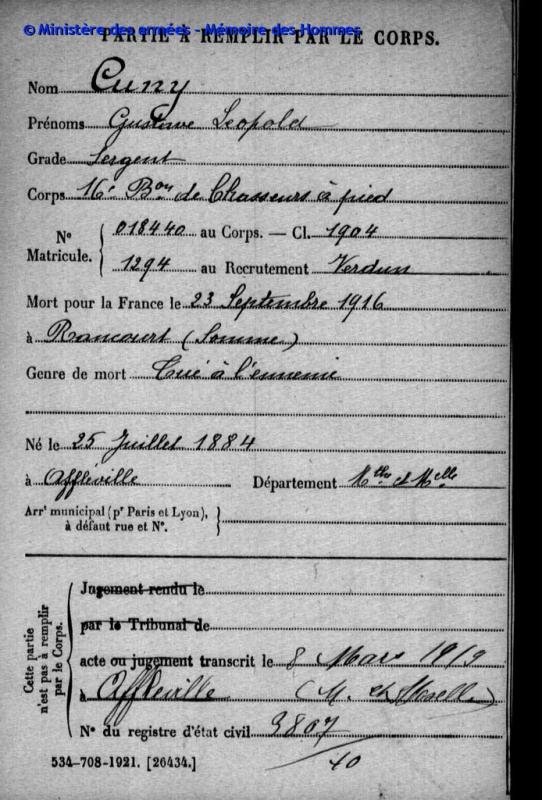 © Ministère des armées - Mémoire des Hommes
PARTIE À REMPLIR PAR LE CORPS.
Nom Cuny
Prénoms Gustave Leopold
Grade Sergent
Corps 16e Bon de Chasseurs à pied
No Matricule. { 018440 au Corps. — Cl. 1904
1294 au Recrutement Verdun
Mort pour la France le 23 Septembre 1916
à Rancourt (Somme)
Genre de mort Tué à l'ennemi
Né le 25 Juillet 1884
à Affléville Département Mthe et Melle
Arrt municipal (pr Paris et Lyon), à défaut rue et No. }
Cette partie n'est pas à remplir par le Corps. {
Jugement rendu le
par le Tribunal de
acte ou jugement transcrit le 8 Mars 1919
à Affléville (M. et Moselle)
No du registre d'état civil 3807/40
534-708-1921. [26434.]